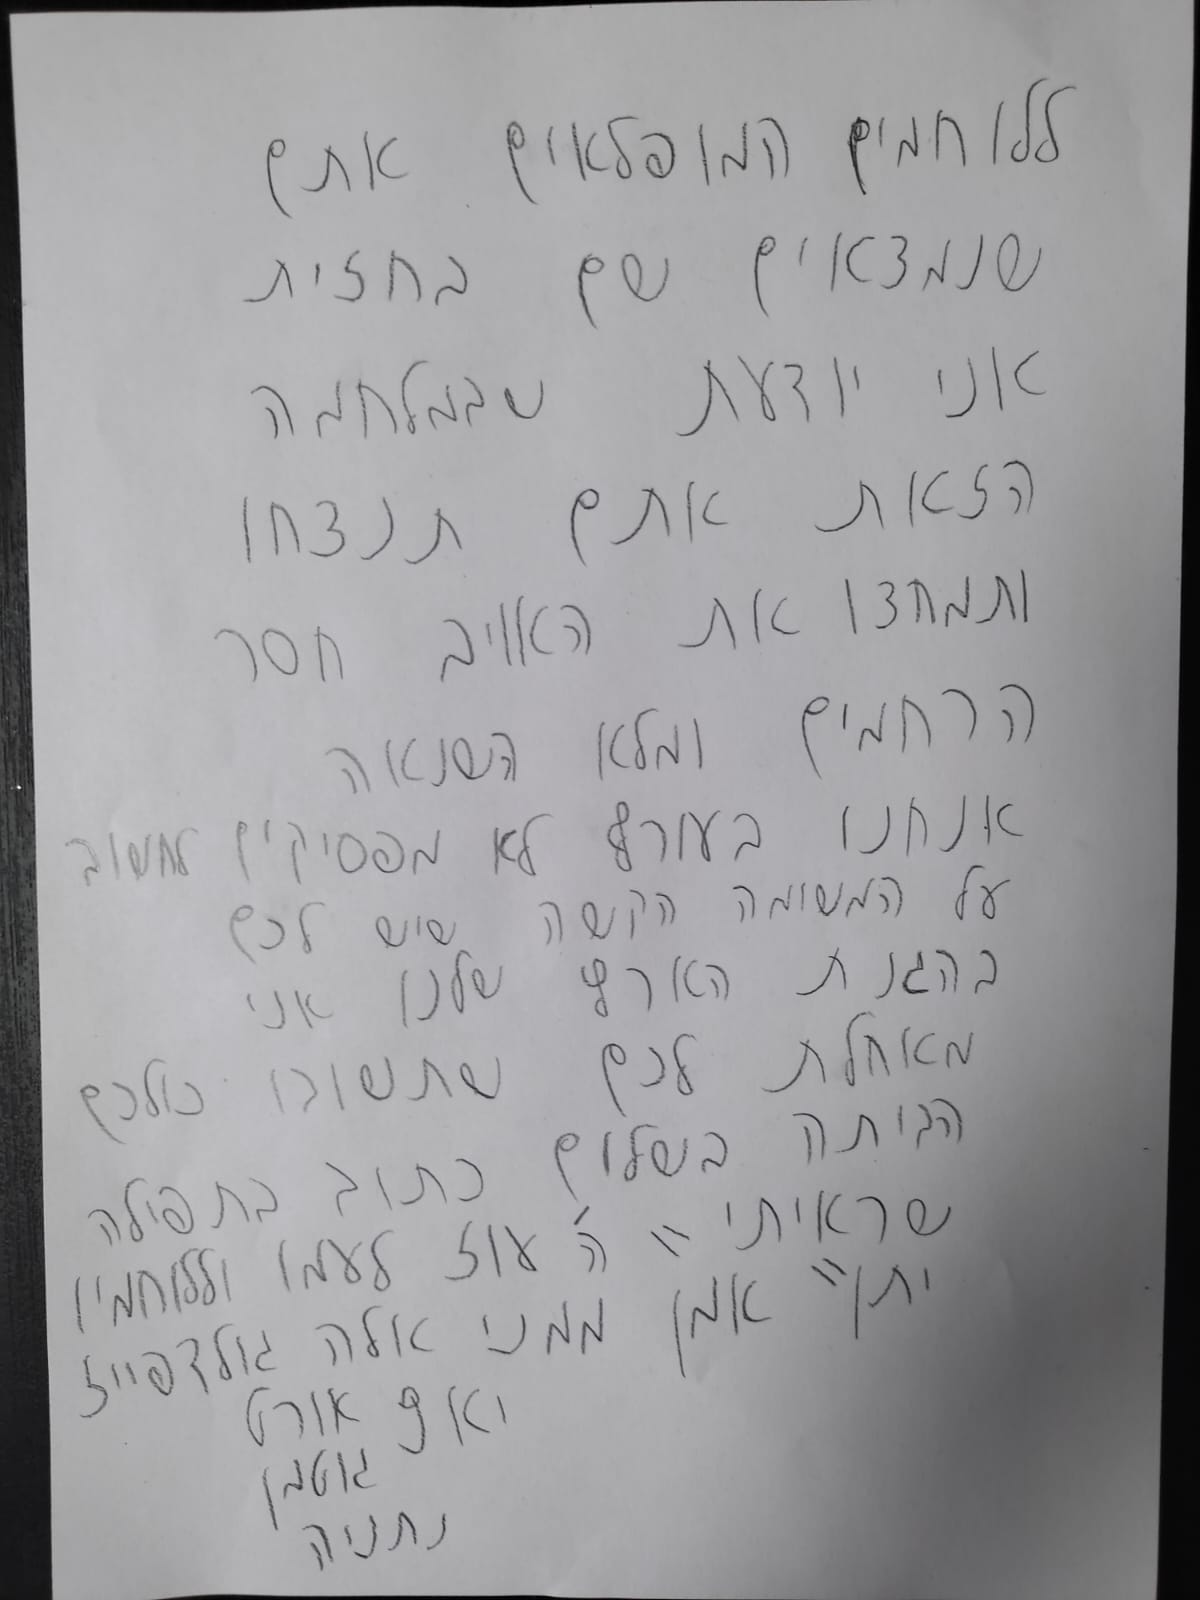 ללוחמים המופלאים אתם
שנמצאים שם בחזית
אני יודעת שבמלחמה
הזאת אתם תנצחו
ותמחצו את האוייב חסר
הרחמים ומלא השנאה
אנחנו בעורף לא מפסיקים לחשוב
על המשומה הקשה שיש לכם
בהגנת הארץ שלנו אני
מאחלת לכם שתשובו כולכם
הביתה בשלום כתוב בתפילה
שראיתי "ה' עוז לעמו וללוחמיו
יתן" אמן ממני אלה גולדפייז
יא ף אורט
גוטמן
נתניה